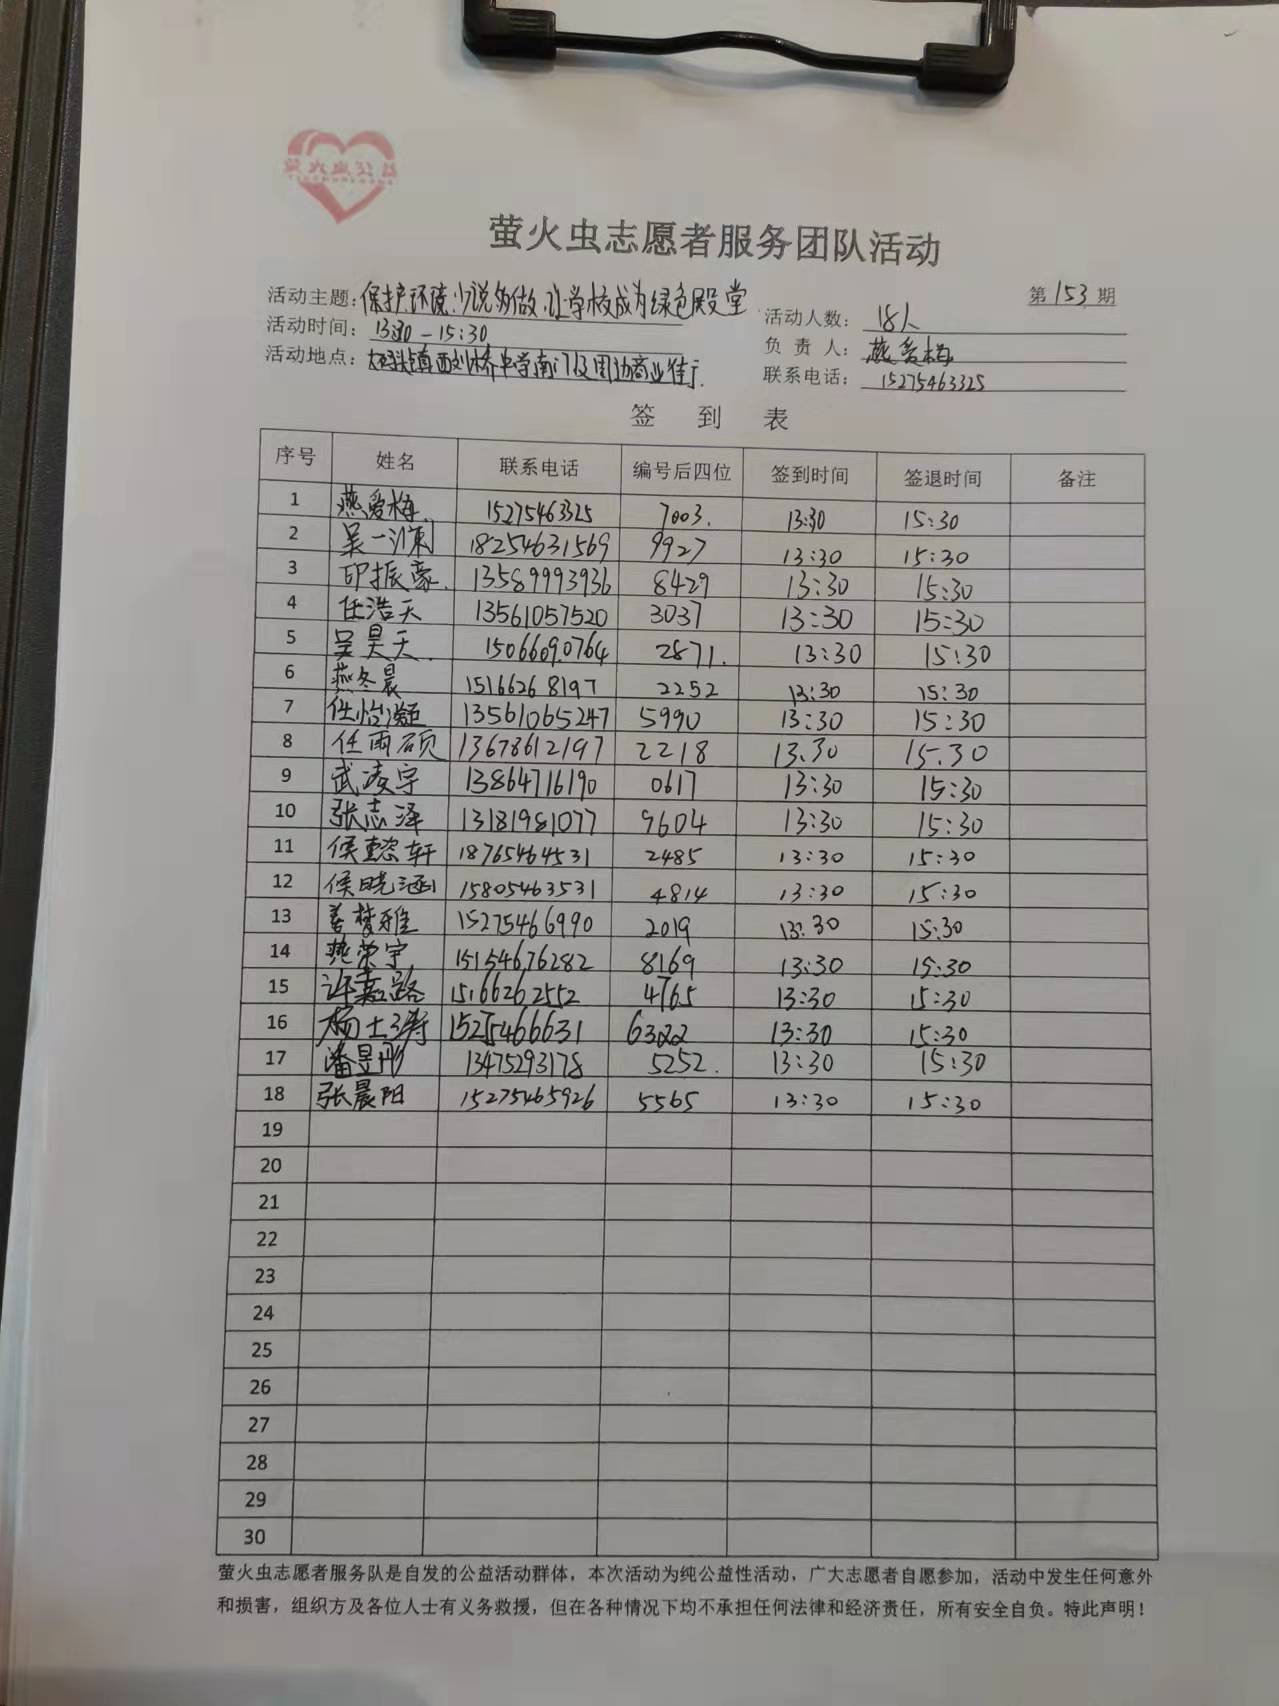 萤火虫公益
萤火虫志愿者服务团队活动
第 153 期
活动主题：保护环境，少说多做，让学校成为绿色殿堂
活动人数：18人
活动时间：13:30-15:30
负责人：燕爱梅
活动地点：镇西刘桥中学南门及周边商业街
联系电话：15275463325
签 到 表
序号 姓名 联系电话 编号后四位 签到时间 签退时间 备注
1 燕爱梅 15275463325 7003. 13:30 15:30
2 吴一 18254631569 9927 13:30 15:30
3 印振豪 13589993936 8429 13:30 15:30
4 任浩天 13561057520 3037 13:30 15:30
5 吴昊天 15066090764 2871. 13:30 15:30
6 燕冬晨 15166268197 2252 13:30 15:30
7 任怡凝 13561065247 5990 13:30 15:30
8 任雨硕 13678612197 2218 13.30 15.30
9 武凌宇 13864716190 0617 13:30 15:30
10 张志泽 13181981077 9604 13:30 15:30
11 侯懿轩 18765464531 2485 13:30 15:30
12 侯晓涵 15805463531 4814 13:30 15:30
13 姜梦雅 15275466990 2019 13:30 15:30
14 燕荣宇 15154676282 8169 13:30 15:30
15 许嘉路 15166262552 4765 13:30 15:30
16 杨士 15275466631 6322 13:30 15:30
17 潘昱彤 13475293178 5252. 13:30 15:30
18 张晨阳 15275465926 5565 13:30 15:30
19
20
21
22
23
24
25
26
27
28
29
30
萤火虫志愿者服务队是自发的公益活动群体，本次活动为纯公益性活动，广大志愿者自愿参加，活动中发生任何意外
和损害，组织方及各位人士有义务救援，但在各种情况下均不承担任何法律和经济责任，所有安全自负。特此声明！